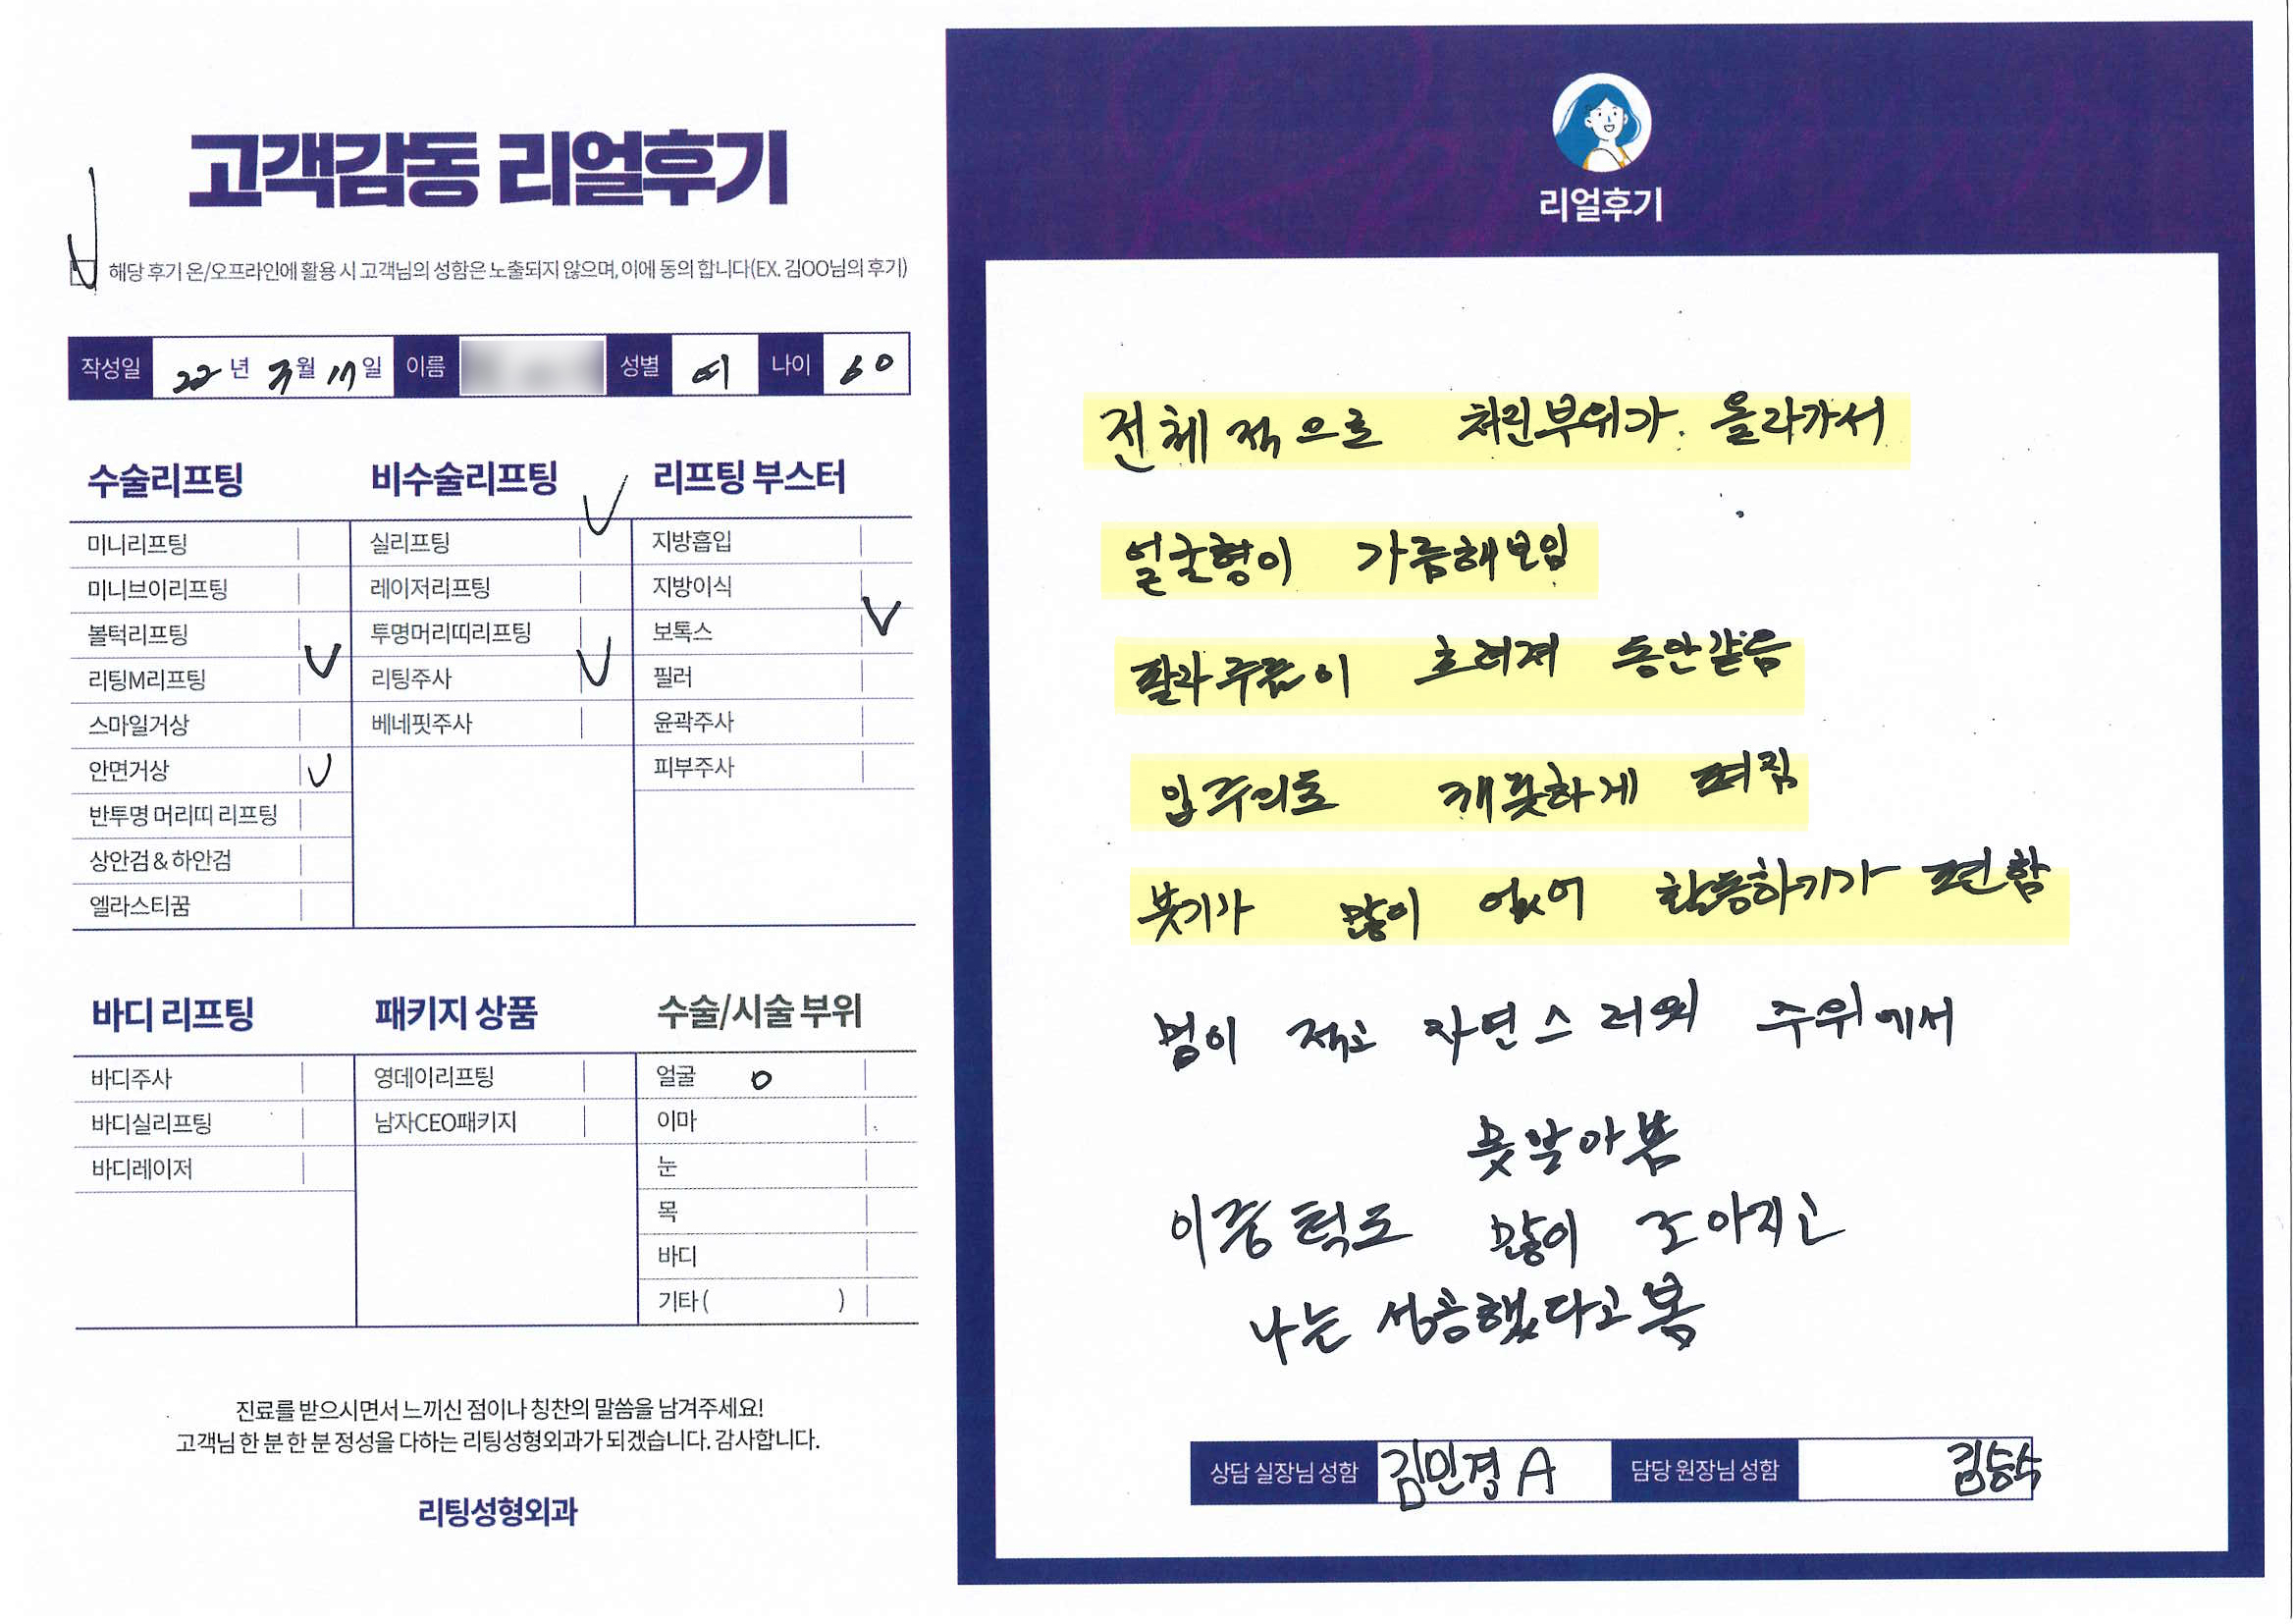 고객감동 리얼후기
해당 후기 온/오프라인에 활용 시 고객님의 성함은 노출되지 않으며, 이에 동의 합니다(EX. 김OO님의 후기)
작성일 22년 3월 17일 이름 성별 여 나이 60
수술리프팅
미니리프팅
미니브이리프팅
볼턱리프팅
리팅M리프팅
스마일거상
안면거상
반투명 머리띠 리프팅
상안검 & 하안검
엘라스티꿈
비수술리프팅
실리프팅
레이저리프팅
투명머리띠리프팅
리팅주사
베네핏주사
리프팅 부스터
지방흡입
지방이식
보톡스
필러
윤곽주사
피부주사
바디 리프팅
바디주사
바디실리프팅
바디레이저
패키지 상품
영데이리프팅
남자CEO패키지
수술/시술 부위
얼굴 O
이마
눈
목
바디
기타 ( )
진료를 받으시면서 느끼신 점이나 칭찬의 말씀을 남겨주세요!
고객님 한 분 한 분 정성을 다하는 리팅성형외과가 되겠습니다. 감사합니다.
리팅성형외과
리얼후기
전체적으로 처진부위가 올라가서
얼굴형이 가름해보임
팔자주름이 흐려져 동안같음
입주의도 깨끗하게 펴짐
붓기가 많이 없어 활동하기가 편함
멍이 적고 자연스러워 주위에서
못알아봄
이중턱도 많이 조아지고
나는 성공했다고 봄
상담 실장님 성함 김민경 A 담당 원장님 성함